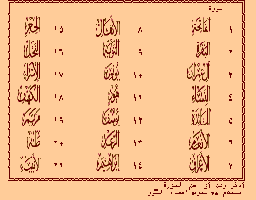 سورة
١ الفاتحة ٨ الأنفال ١٥ الحجر
٢ البقرة ٩ التوبة ١٦ النحل
٣ آل عمران ١٠ يونس ١٧ الإسراء
٤ النساء ١١ هود ١٨ الكهف
٥ المائدة ١٢ يوسف ١٩ مريم
٦ الأنعام ١٣ الرعد ٢٠ طه
٧ الأعراف ١٤ إبراهيم ٢١ الأنبياء